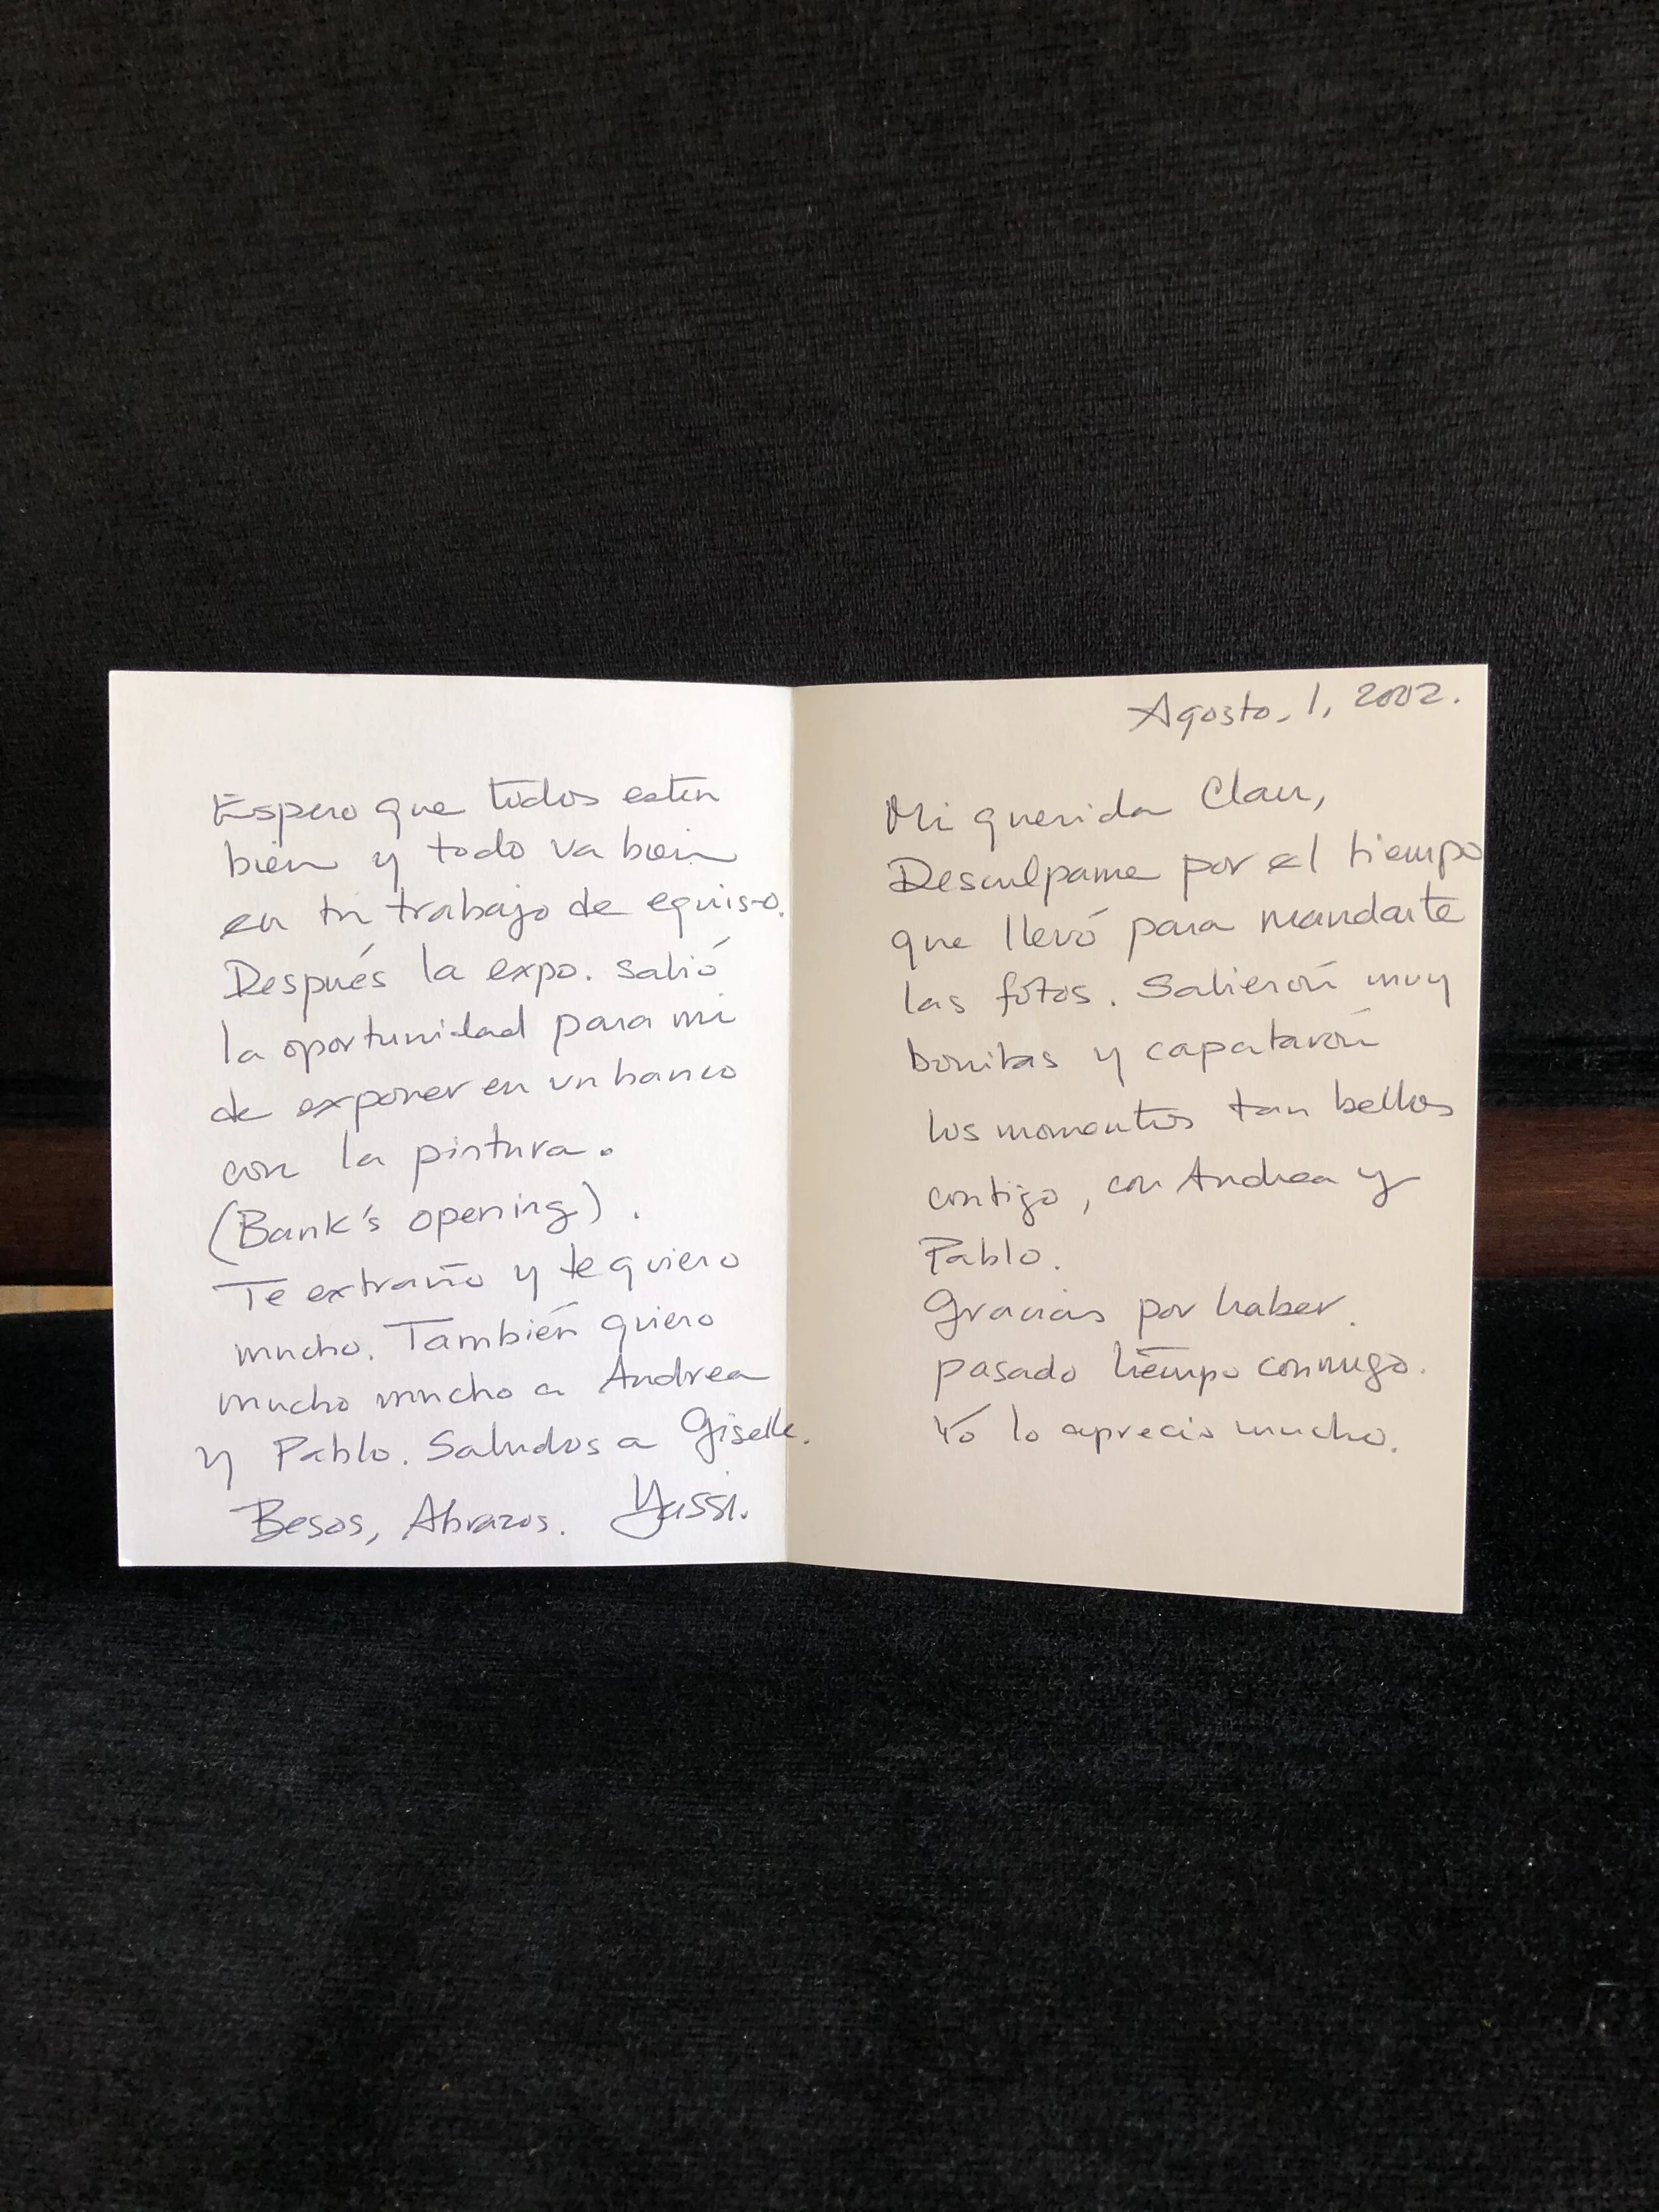 Agosto, 1, 2002.
Mi querida Clau,
Desculpame por el tiempo
que llevó para mandarte
las fotos. Salierón muy
bonitas y capatarón
los momentos tan bellos
contigo, con Andrea y
Pablo.
Gracias por haber.
pasado tiempo conmigo.
Yo lo aprecio mucho.
Espero que todos esten
bien y todo va bien
en tu trabajo de
Después la expo. salió
la oportunidad para mi
de exponer en un banco
con la pintura.
(Bank's opening).
Te extraño y te quiero
mucho. También quiero
mucho mucho a Andrea
y Pablo. Saludos a Giselle.
Besos, Abrazos. Yassi.